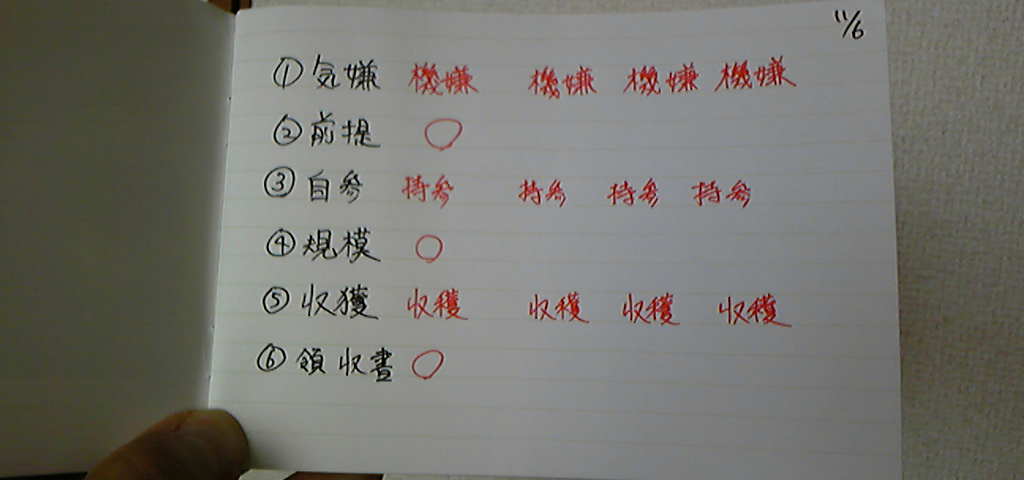 11/6
① 気嫌 機嫌 機嫌 機嫌 機嫌
② 前提 ○
③ 自参 持参 持参 持参 持参
④ 規模 ○
⑤ 収獲 収穫 収穫 収穫 収穫
⑥ 領収書 ○